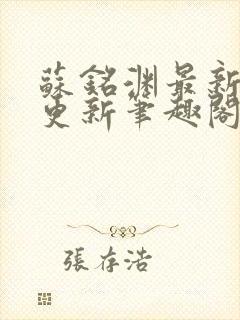 蘇銘淵最新
更新筆趣閣
張存浩